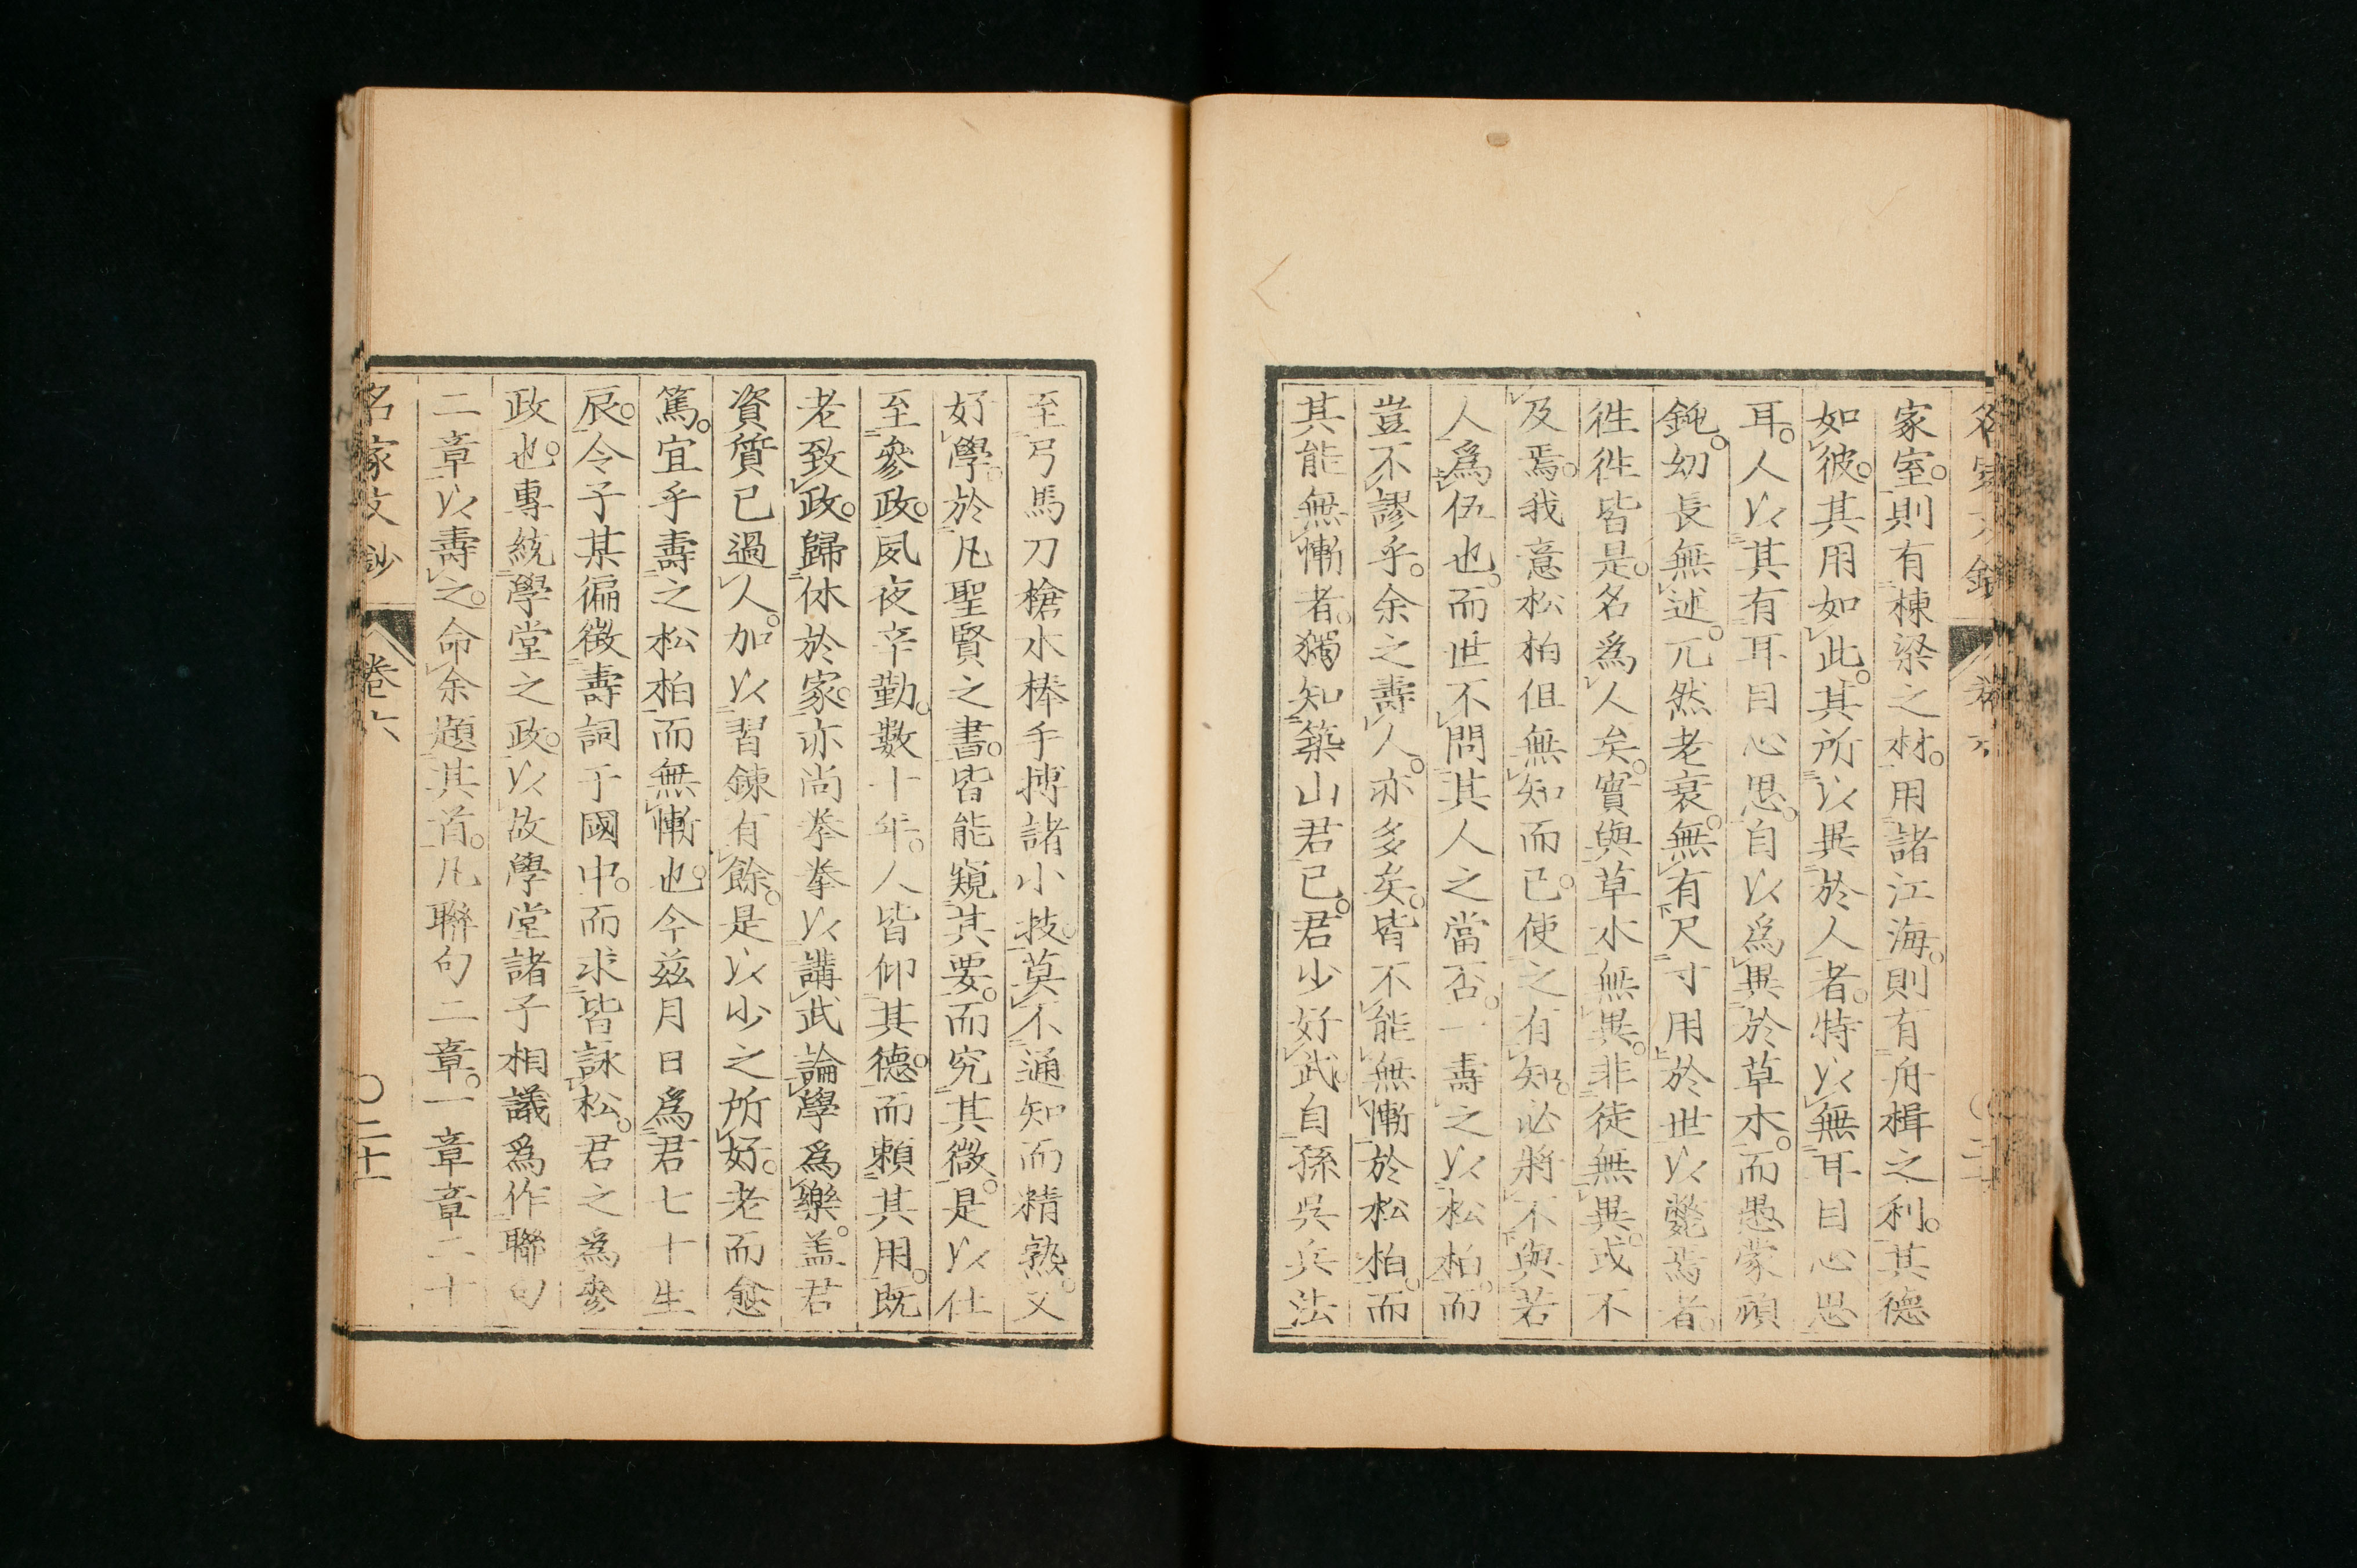 家室。則有棟梁之材。用諸江海。則有舟楫之利。其德
如彼。其用如此。其所以異於人者。特以無耳目心思
耳。人以其有耳目心思。自以爲異於草木。而愚蒙頑
鈍。幼長無述。兀然老衰。無有尺寸用於世以斃焉者。
徃徃皆是。名爲人矣。實與草木無異。非徒無異。或不
及焉。我意松柏但無知而已。使之有知。必將不與若
人爲伍也。而世不問其人之當否。一壽之以松柏。而
豈不謬乎。余之壽人。亦多矣。皆不能無慚於松柏。而
其能無慚者。獨知築山君已。君少好武。自孫吳兵法
至弓馬刀槍水棒手搏諸小技。莫不通知而精熟。又
好學。於凡聖賢之書。皆能窺其要。而究其微。是以仕
至參政。夙夜辛勤。數十年。人皆仰其德。而頼其用。既
老致政。歸休於家。亦尚拳拳以講武論學爲樂。盖君
資質已過人。加以習錬有餘。是以少之所好。老而愈
篤。宜乎壽之松柏而無慚也。今茲月日爲君七十生
辰。令子某徧徴壽詞于國中。而求皆詠松。君之爲參
政也。專統學堂之政。以故學堂諸子相議爲作聯句
二章以壽之。命余題其首。凡聯句二章。一章章二十
名家文鈔
卷六
〇二十一